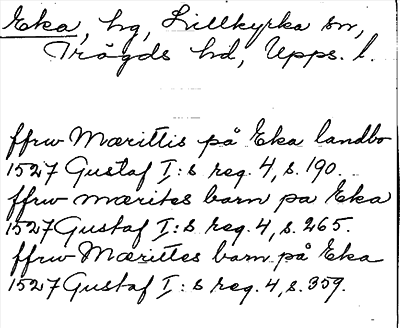 Eka, hg, Lillkyrka sn,
Trögds hd, Upps. l.
ffrw Mærittis på Eka landbo
1527 Gustaf I:s reg. 4, s. 190.
ffrw mærites barn pa Eka
1527 Gustaf I:s reg. 4, s. 265.
ffrw Mærittes barn på Eka
1527 Gustaf I:s reg. 4, s. 359.